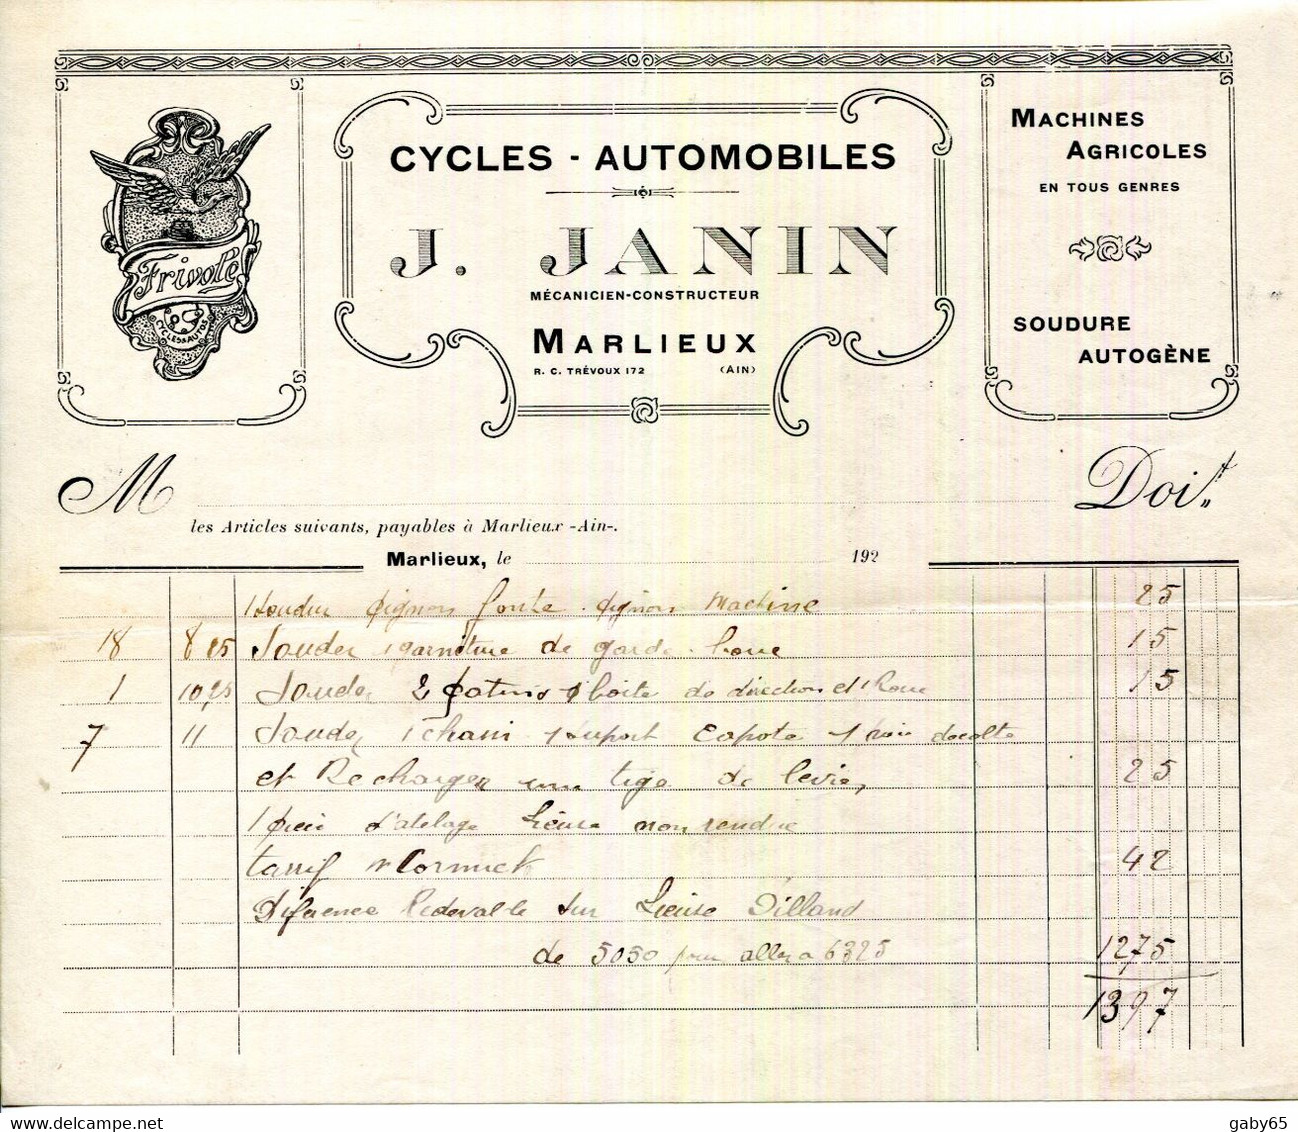 Frivole
CYCLES & AUTOS
CYCLES - AUTOMOBILES
J. JANIN
MÉCANICIEN-CONSTRUCTEUR
MARLIEUX
R. C. TRÉVOUX 172 (AIN)
MACHINES
AGRICOLES
EN TOUS GENRES
SOUDURE
AUTOGÈNE
M Doit
les Articles suivants, payables à Marlieux -Ain-.
Marlieux, le 192
pignon fonte pignon Machine 25
18 8 25 Souder 1 garniture de garde-boue 15
1 10,25 Souder 2 patins 1 boite de direction et 1 roue 15
7 11 Souder 1 support Capote
et Recharger une tige de levier 25
1 pièce d'atelage Lieuse non rendue
tarif Mc Cormick 42
Diference Redevable sur Lieuse Dilland
de 5050 pour aller a 6325 1275
1397
delcampe.net
gaby65